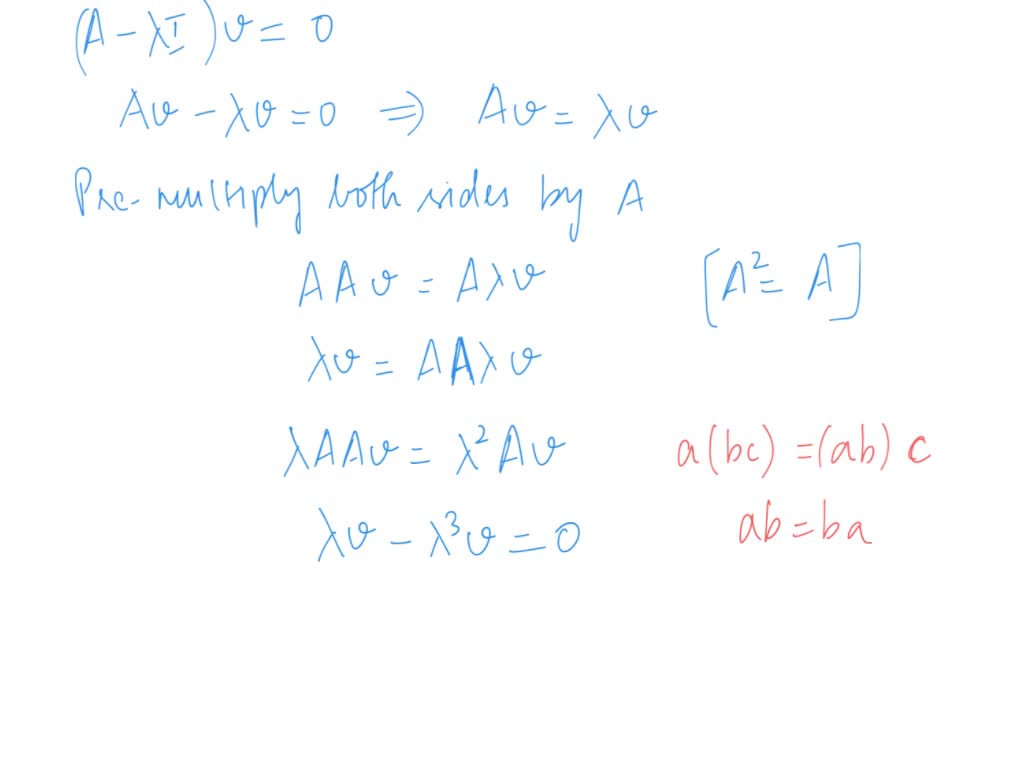 (A - λI)v = 0
Av - λv = 0 ⇒ Av = λv
Pre-multiply both sides by A
AAv = Aλv [A² = A]
λv = AAλv
λAAv = λ²Av a(bc) = (ab) c
λv - λ³v = 0 ab = ba